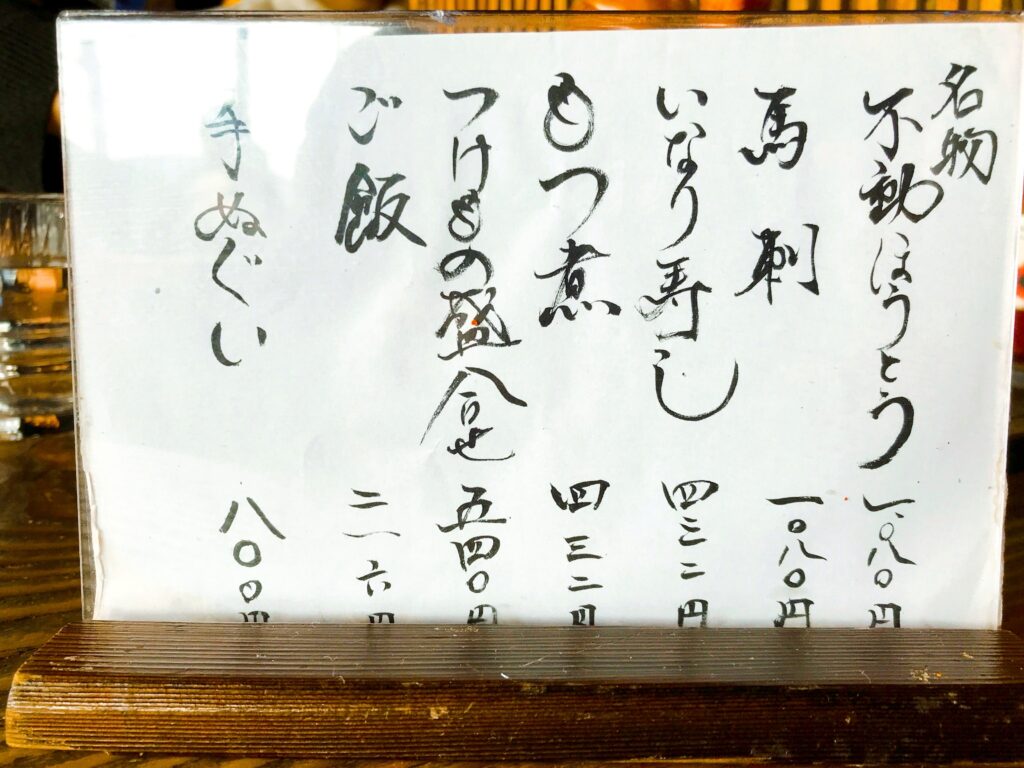 名物
不動ほうとう 一、〇八〇円
馬刺 一〇八〇円
いなり寿し 四三二円
もつ煮 四三二円
つけもの盛合せ 五四〇円
ご飯 二一六円
手ぬぐい 八〇〇円